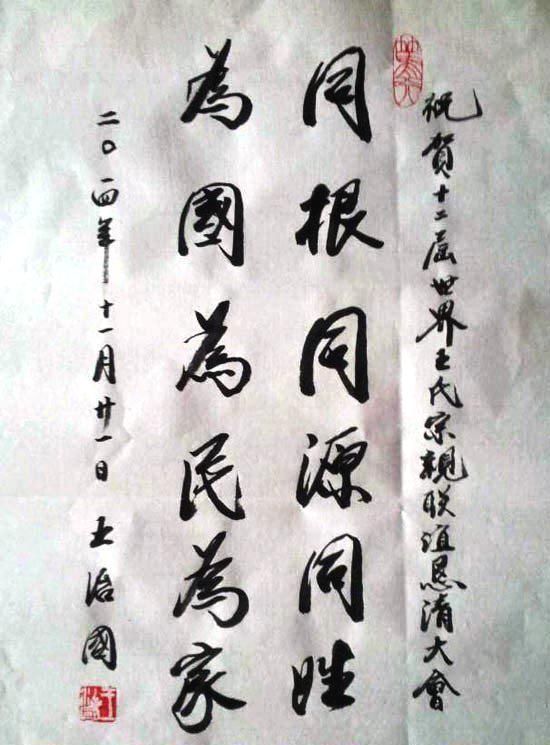 祝賀十二届世界王氏宗親联谊恳清大會
同根同源同姓
為國為民為家
二〇一四年十一月廿一日 王治國